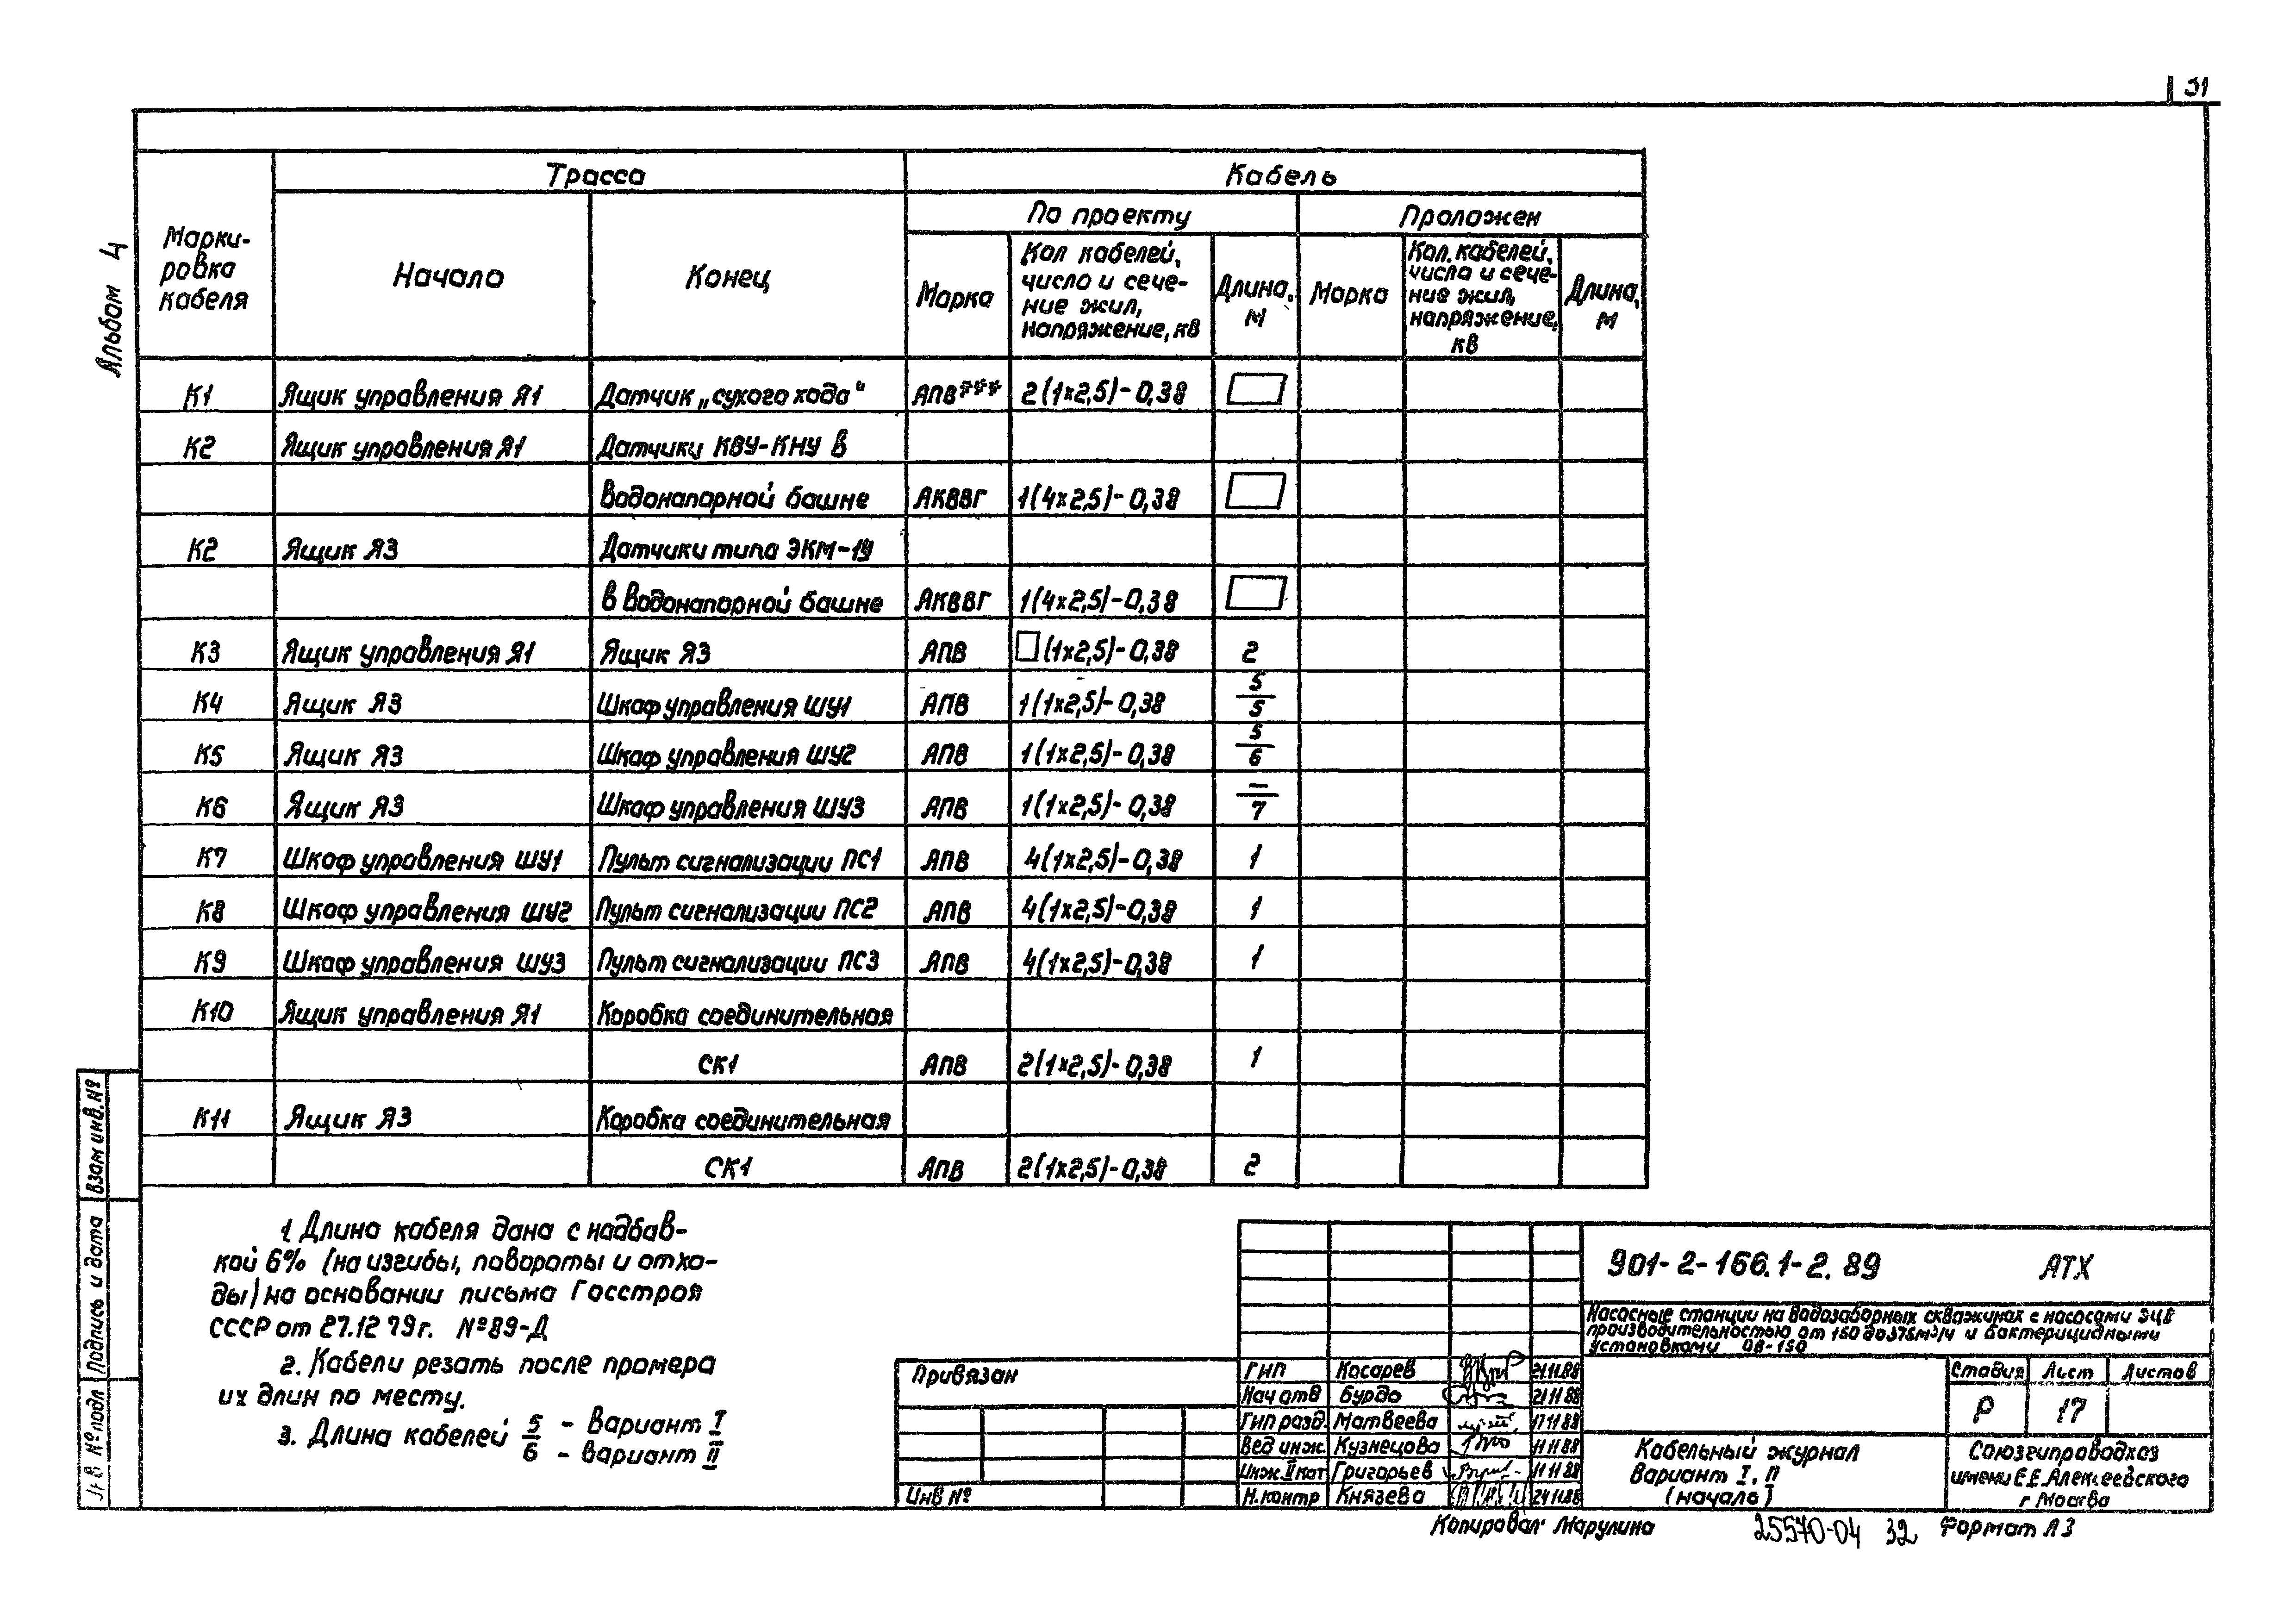 31
Альбом 4
Марки-
ровка
кабеля
Трасса
Кабель
Начало
Конец
По проекту
Проложен
Марка
Кол кабелей,
число и сече-
ние жил,
напряжение, кВ
Длина,
м
Марка
Кол. кабелей,
число и сече-
ние жил,
напряжение,
кВ
Длина,
м
К1 Ящик управления Я1 Датчик „сухого хода" АПВ*** 2(1х2,5)-0,38
К2 Ящик управления Я1 Датчики КВУ-КНУ в
водонапорной башне АКВВГ 1(4х2,5)-0,38
К2 Ящик Я3 Датчики типа ЭКМ-1У
в водонапорной башне АКВВГ 1(4х2,5)-0,38
К3 Ящик управления Я1 Ящик Я3 АПВ (1х2,5)-0,38 2
К4 Ящик Я3 Шкаф управления ШУ1 АПВ 1(1х2,5)-0,38 5/5
К5 Ящик Я3 Шкаф управления ШУ2 АПВ 1(1х2,5)-0,38 5/6
К6 Ящик Я3 Шкаф управления ШУ3 АПВ 1(1х2,5)-0,38 –/7
К7 Шкаф управления ШУ1 Пульт сигнализации ПС1 АПВ 4(1х2,5)-0,38 1
К8 Шкаф управления ШУ2 Пульт сигнализации ПС2 АПВ 4(1х2,5)-0,38 1
К9 Шкаф управления ШУ3 Пульт сигнализации ПС3 АПВ 4(1х2,5)-0,38 1
К10 Ящик управления Я1 Коробка соединительная
СК1 АПВ 2(1х2,5)-0,38 1
К11 Ящик Я3 Коробка соединительная
СК1 АПВ 2(1х2,5)-0,38 2
1 Длина кабеля дана с надбав-
кой 6% (на изгибы, повороты и отхо-
ды) на основании письма Госстроя
СССР от 27.12 79г. №89-Д
2. Кабели резать после промера
их длин по месту.
3. Длина кабелей 5 - Вариант I
6 - вариант II
Взам инв. №
Подпись и дата
№ подл
Привязан
Инв №
ГИП Косарев 21.11.88
Нач отв Бурдо 21 11 88
Гип разд. Матвеева 17 11 88
Вед инж. Кузнецова 11 11 88
Инж. II кат Григорьев 11 11 88
Н. контр Князева 24 11.88
901-2-166.1-2.89 АТХ
Насосные станции на водозаборных скважинах с насосами ЭЦВ
производительностью от 150 до 375 м³/ч и бактерицидными
установками ОВ-150
Стадия Лист Листов
Р 17
Кабельный журнал
Вариант I, II
(начало)
Союзгипроводхоз
имени Е.Е. Алексеевского
г Москва
Копировал Марулина 25570-04 32 Формат А3